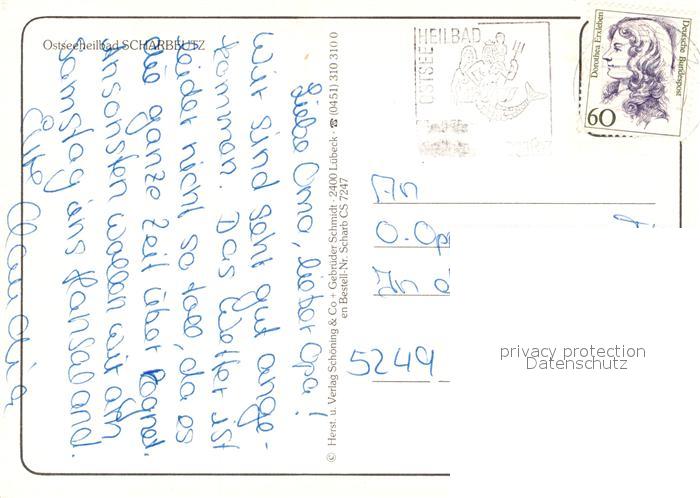 Ostseeheilbad SCHARBEUTZ
Liebe Oma, lieber Opa!
Wir sind sehr gut ange-
kommen. Das Wetter ist
leider nicht so toll, da es
die ganze Zeit über regnet.
Ansonsten wollen wir am
Samstag ins Hansaland.
Eure Claudia
© Herst. u. Verlag Schöning & Co + Gebrüder Schmidt · 2400 Lübeck · ☎ (0451) 310 310 0
en Bestell-Nr. Scharb CS 7247
OSTSEE
HEILBAD
Dorothea Erxleben
Deutsche Bundespost
60
An
O. Op
In d
5249
privacy protection
Datenschutz